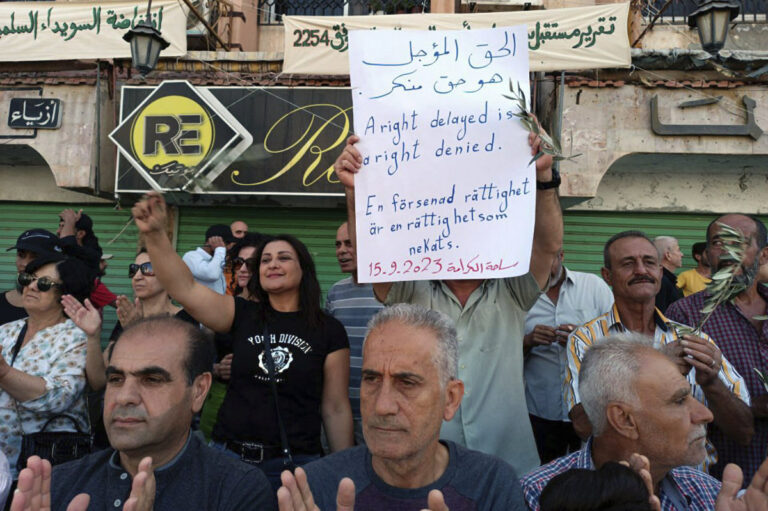 انتفاضة السويداء السلمية
تقرير مستقبل
2254
الحق المؤجل
هو حق منكر.
A right delayed is
a right denied.
En försenad rättighet
är en rättighet som
nekats.
15.9.2023 ساحة الكرامة
أزياء
RE
بوتيك
YOUTH DIVISION